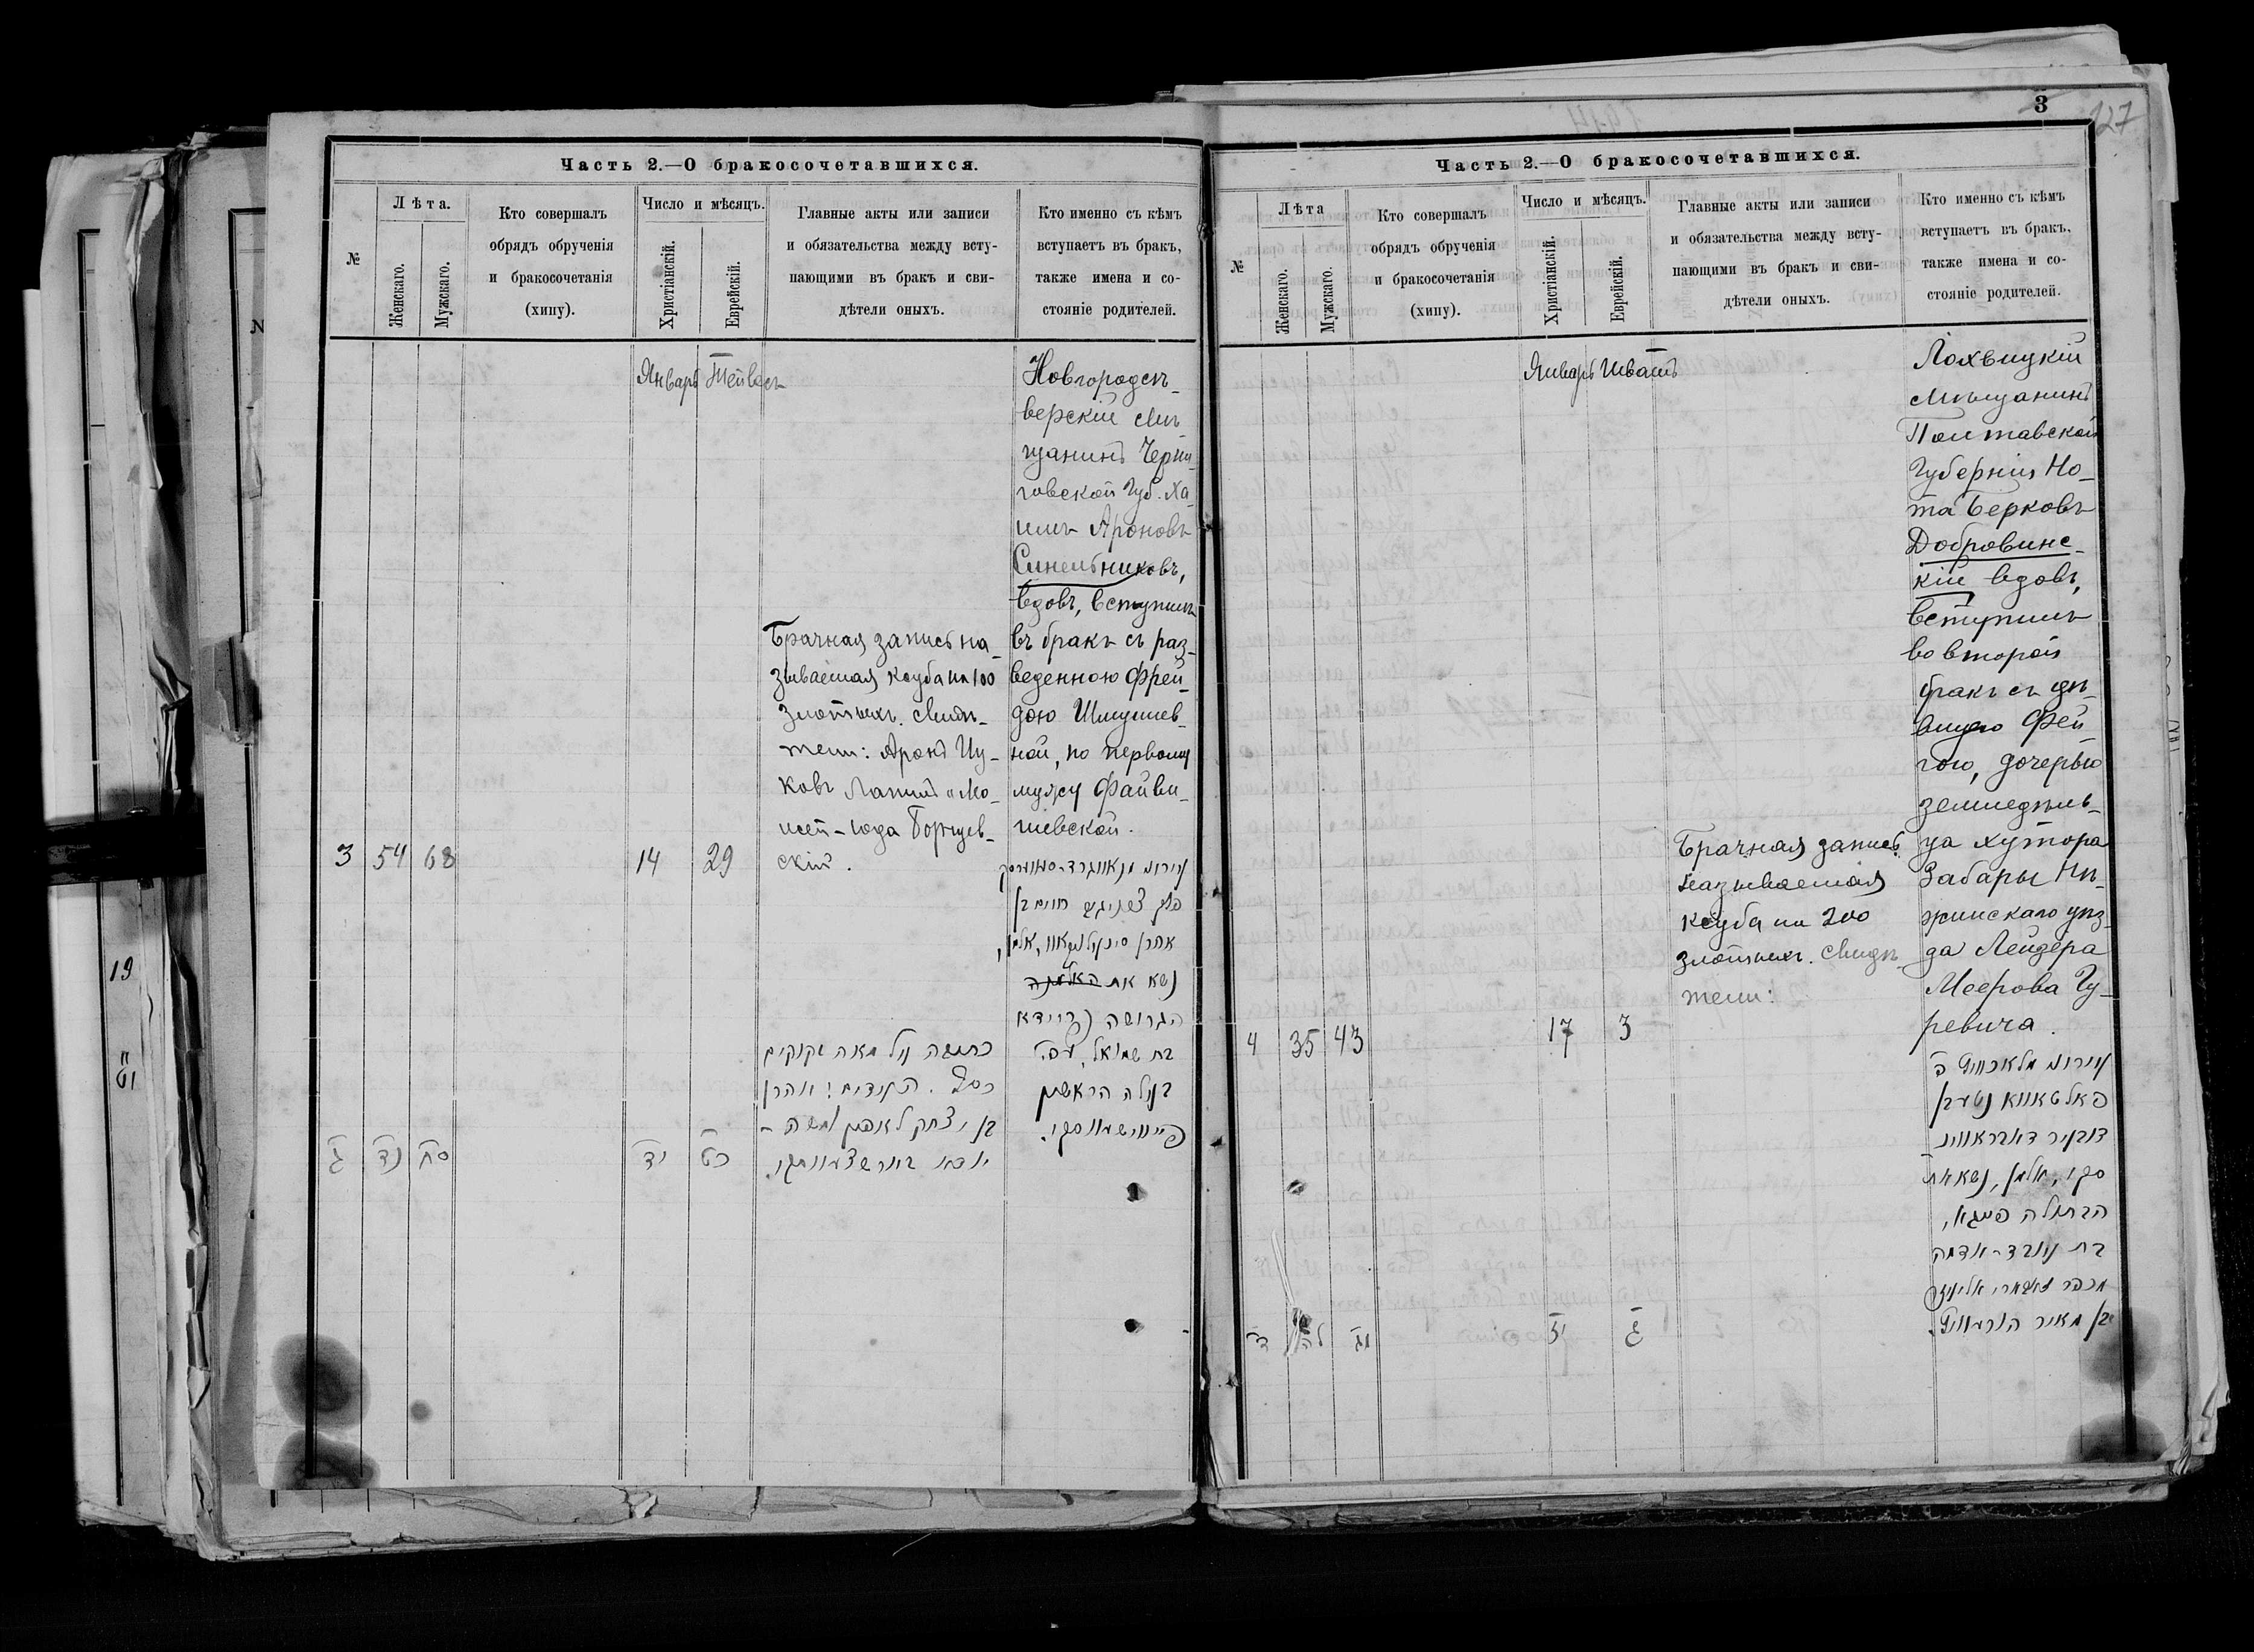 Часть 2.—О бракосочетавшихся.
№
Лѣта.
Женскаго.
Мужскаго.
Кто совершалъ
обрядъ обрученія
и бракосочетанія
(хипу).
Число и мѣсяцъ.
Христіанскій.
Еврейскій.
Главные акты или записи
и обязательства между всту-
пающими въ бракъ и сви-
дѣтели оныхъ.
Кто именно съ кѣмъ
вступаетъ въ бракъ,
также имена и со-
стояніе родителей.
3
54
68
Январь
14
29
Брачная запись на-
зываемая ксуба на 100
злотыхъ. Свидѣ-
тели: Аронъ Иц-
ковъ Лапинъ и Мо-
исей-Юда Борщев-
скій.
Новгородсѣ-
верскій мѣ-
щанинъ Черни-
говской Губ. Ха-
имъ Ароновъ
Синельниковъ,
вдовъ, вступилъ
въ бракъ съ раз-
веденною Фрей-
дою Шмуилев-
ной, по первому
мужу Файви-
шевской.
אהרן
נשא את האלמנה
הגרושה פריידא
בת שמואל,
כתובה על מאה זקוקים
כסף. העדים: אהרן
בן יצחק לאפין ומשה -
ג
נד
סח
יד
כט
3
127
Часть 2.—О бракосочетавшихся.
№
Лѣта
Женскаго.
Мужскаго.
Кто совершалъ
обрядъ обрученія
и бракосочетанія
(хипу).
Число и мѣсяцъ.
Христіанскій.
Еврейскій.
Главные акты или записи
и обязательства между всту-
пающими въ бракъ и сви-
дѣтели оныхъ.
Кто именно съ кѣмъ
вступаетъ въ бракъ,
также имена и со-
стояніе родителей.
4
35
43
Январь Шватъ
17
3
Брачная запись
называемая
ксуба на 200
злотыхъ. Свидѣ-
тели:
Лохвицкій
мѣщанинъ
Полтавской
Губерніи Но-
та Берковъ
Добровинс-
кій вдовъ,
вступилъ
во второй
бракъ съ дѣ-
вицею Фей-
гою, дочерью
земледѣль-
ца хутора
Забары Нѣ-
жинскаго уѣз-
да Лейзера
Меерова Гу-
ревича.
סקי, אלמן, נשא את
הבתולה פייגא,
בת עובד-אדמה
בן מאיר הורוויץ
ד
לה
מג
יז
ג
19
יט